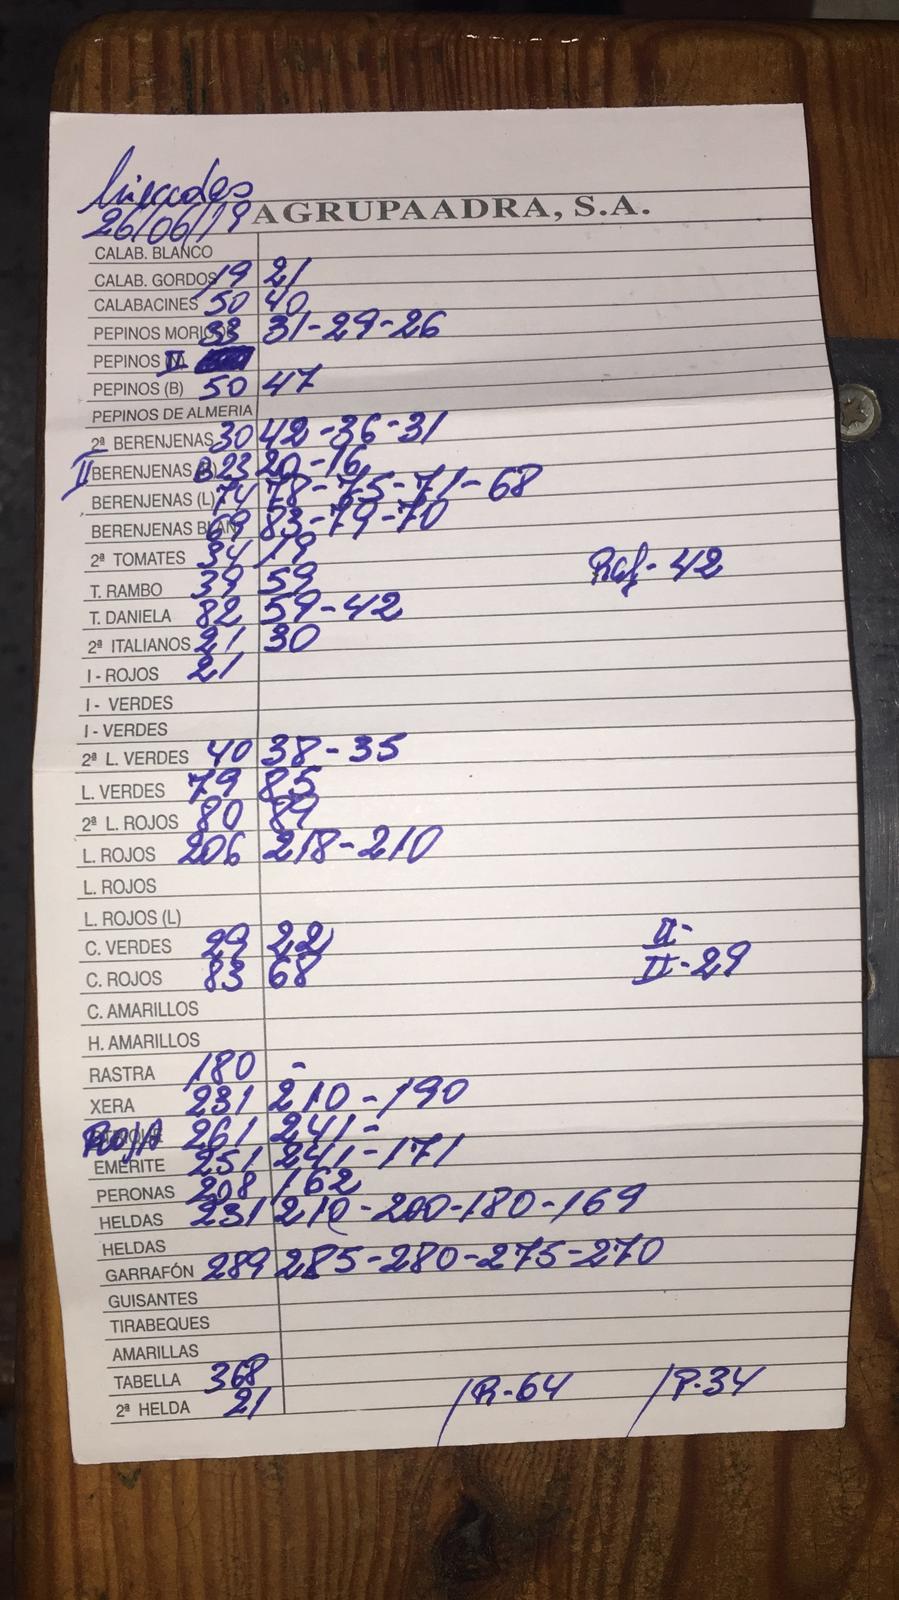 Miercoles
26/06/19 AGRUPAADRA, S.A.
CALAB. BLANCO
CALAB. GORDOS 19 21
CALABACINES 50 40
PEPINOS 33 31-29-26
PEPINOS II
PEPINOS (B) 50 47
PEPINOS DE ALMERIA
2ª BERENJENAS 30 42-36-31
II BERENJENAS B 23 20-16
BERENJENAS (L) 74 78-75-71-68
BERENJENAS BLAN 69 83-79-70
2ª TOMATES 34 19
T. RAMBO 39 59 Raf-42
T. DANIELA 82 59-42
2ª ITALIANOS 21 30
I - ROJOS 21
I - VERDES
I - VERDES
2ª L. VERDES 40 38-35
L. VERDES 79 85
2ª L. ROJOS 80 89
L. ROJOS 206 218-210
L. ROJOS
L. ROJOS (L)
C. VERDES 29 22 II-
C. ROJOS 83 68 II-29
C. AMARILLOS
H. AMARILLOS
RASTRA 180 -
XERA 231 210-190
ROJA 261 241-
EMERITE 251 241-171
PERONAS 208 162
HELDAS 231 210-200-180-169
HELDAS
GARRAFÓN 289 285-280-275-270
GUISANTES
TIRABEQUES
AMARILLAS
TABELLA 368
2ª HELDA 21 /R-64 /P-34